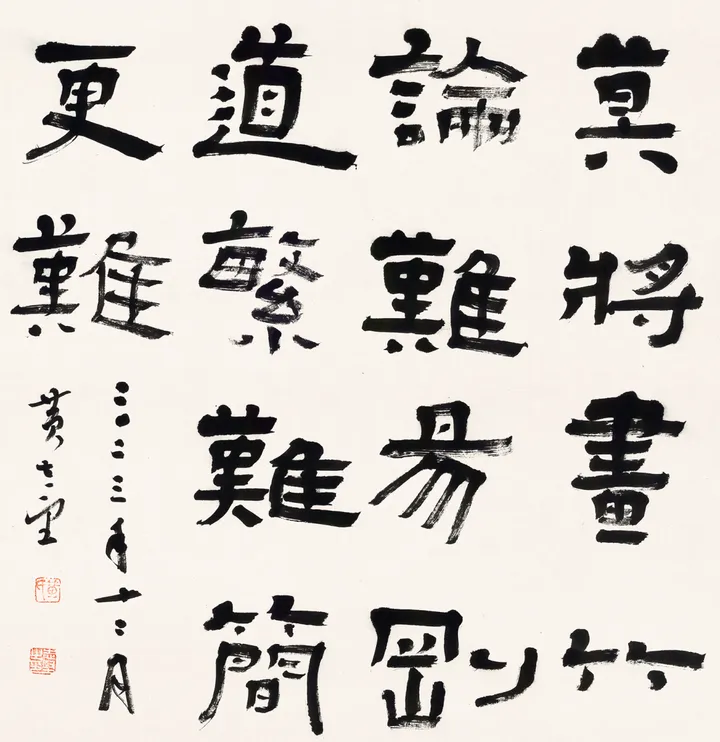 莫將畫竹
論難易剛
道繁難簡
更難
二〇二三年十二月
黄